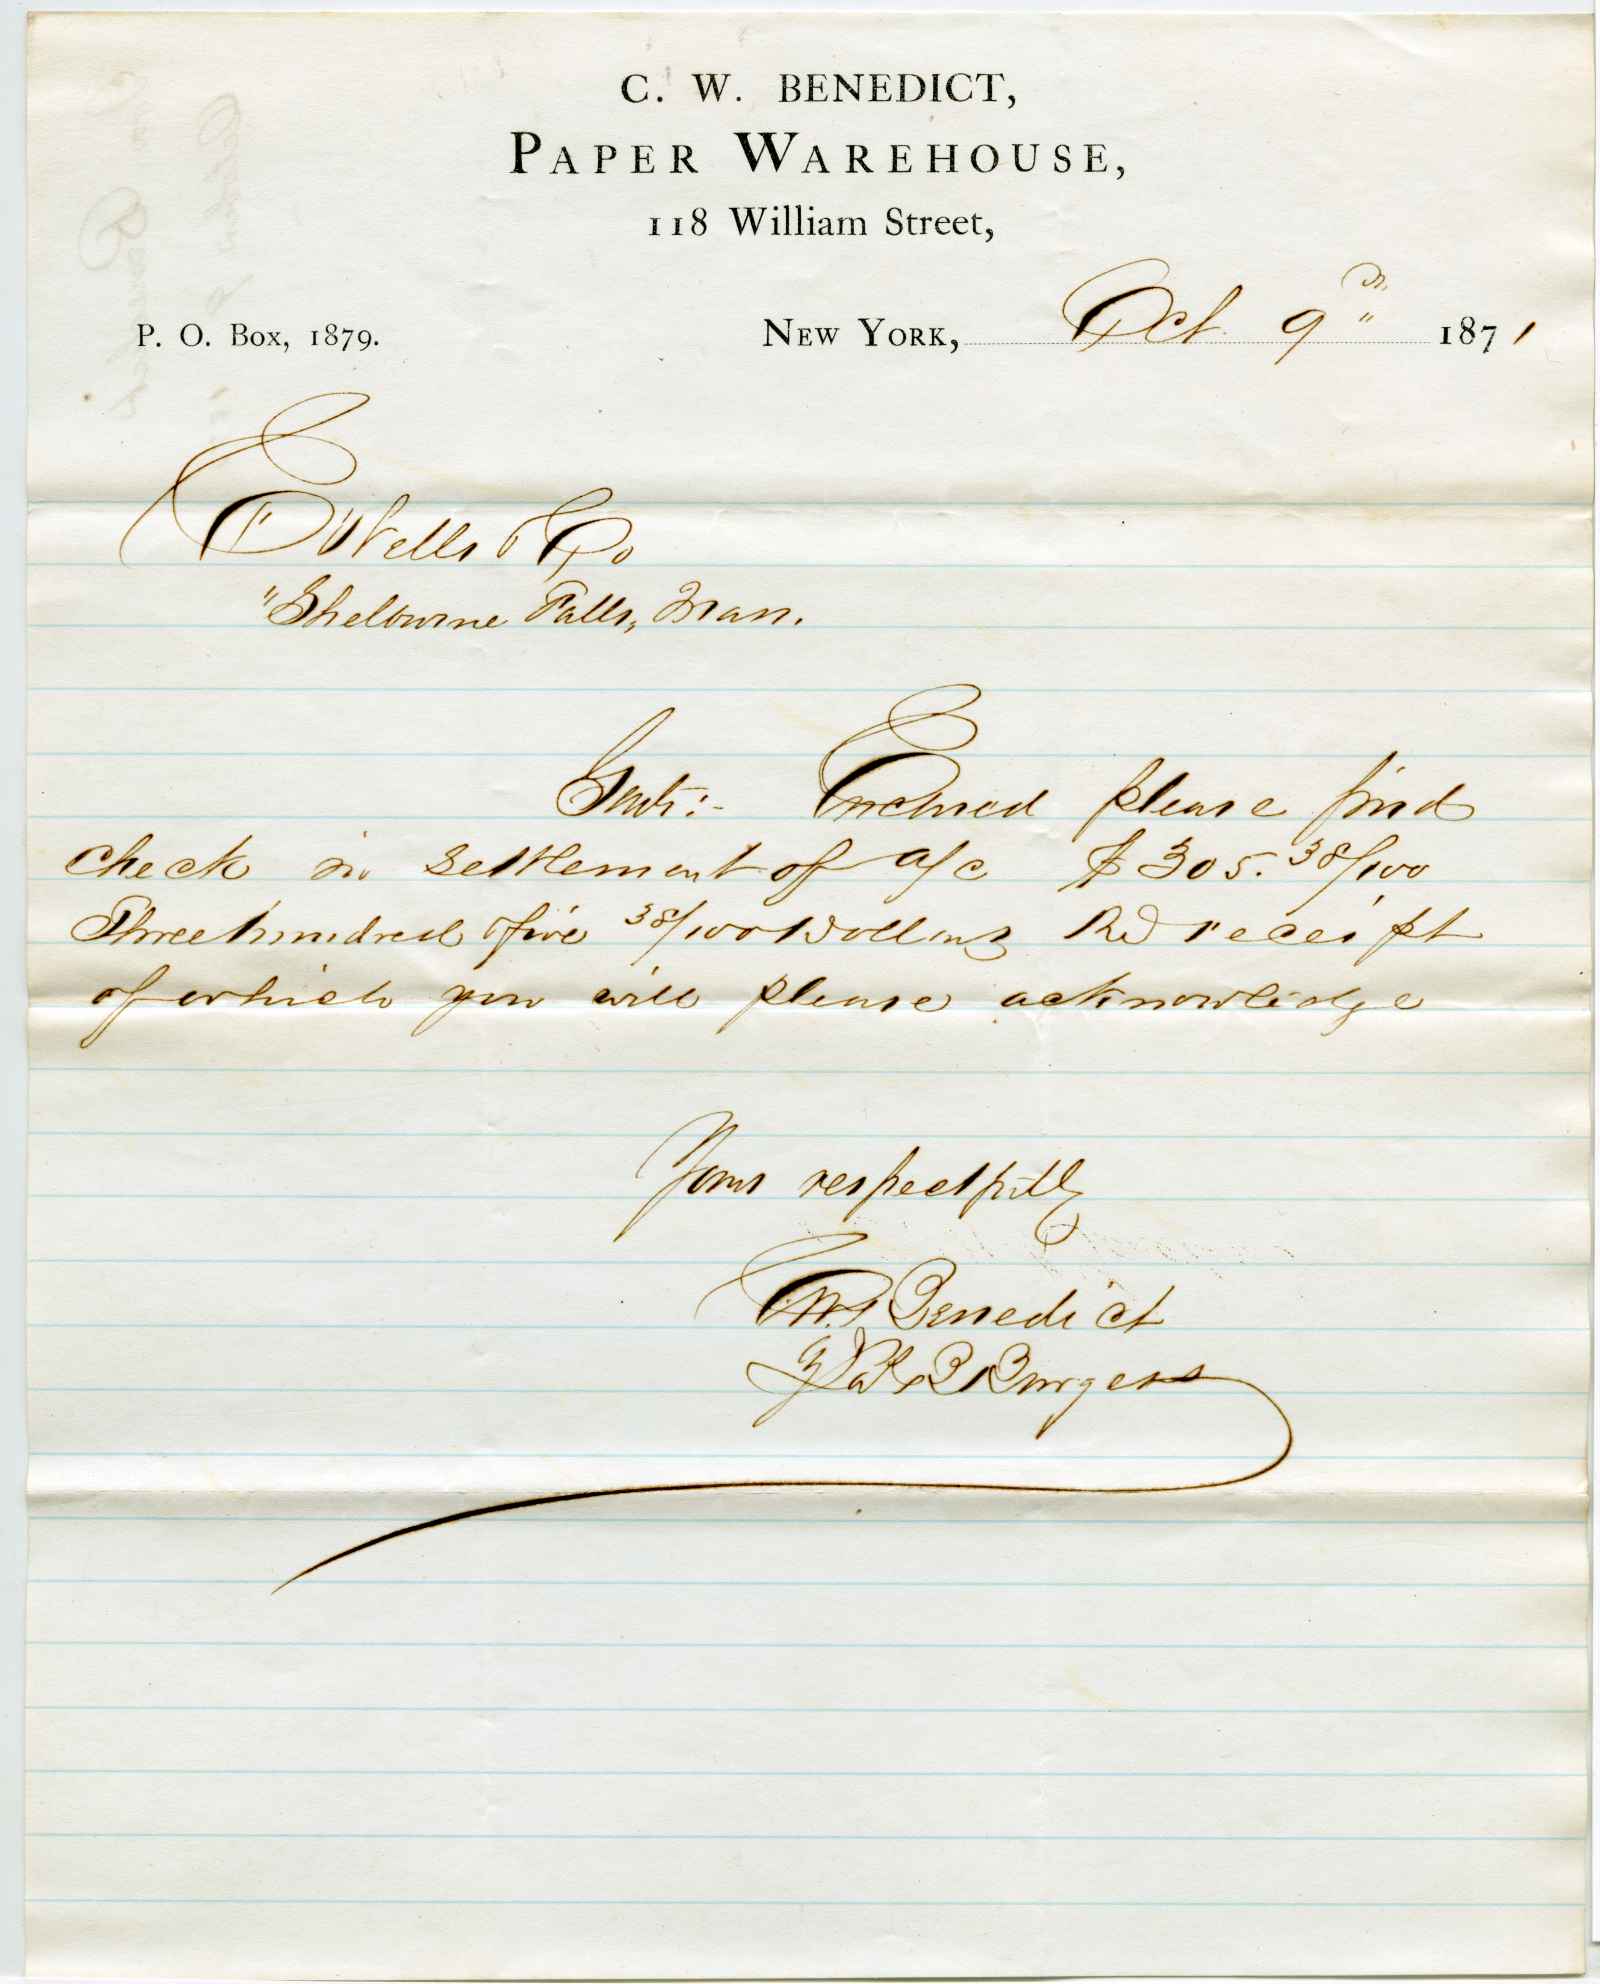 C. W. BENEDICT,
PAPER WAREHOUSE,
118 William Street,
P. O. Box, 1879. NEW YORK, Oct 9th 1871
E Wells & Co
"Shelburne Falls, Mass.
Gents:- Enclosed please find
check in settlement of a/c $305.38/100
Three hundred & five 38/100 Dollars receipt
of which you will please acknowledge
Yours respectfully
C.W. Benedict
B Burgess